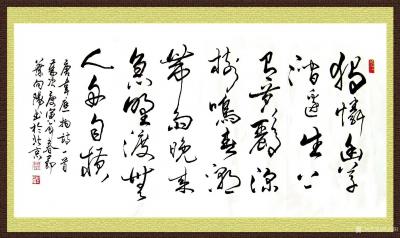 獨憐幽草
澗邊生上
有黃鸝深
樹鳴春潮
帶雨晚來
急野渡無
人舟自橫
唐韋應物詩一首
歲次庚寅春
向陽書於北京